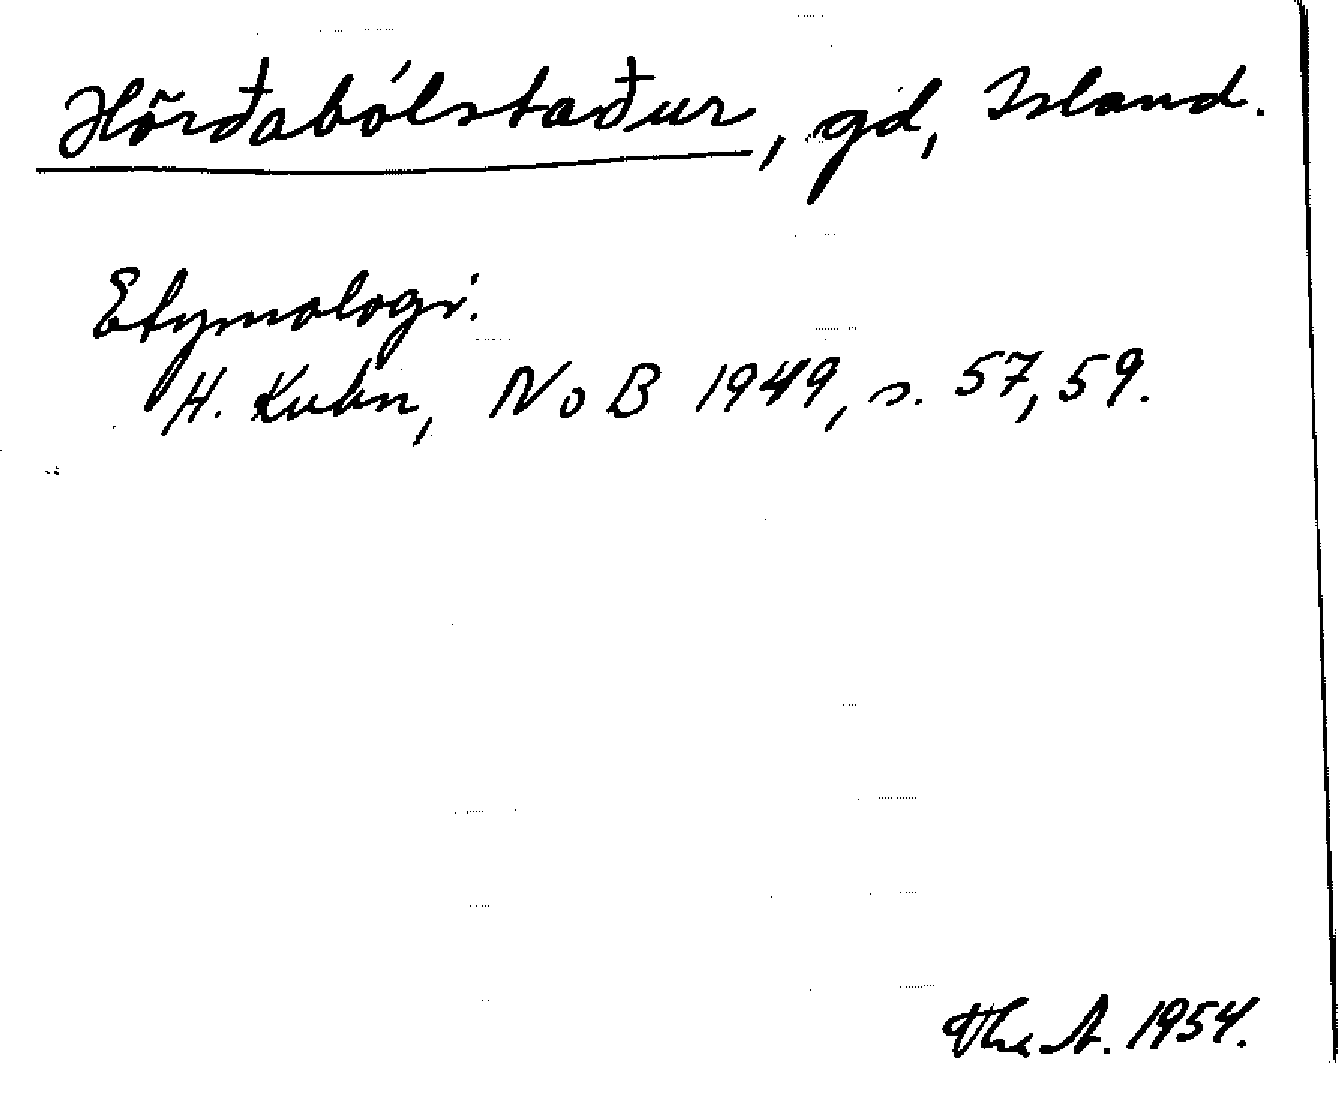 Hörðabólstaður, gd, Island.
Etymologi.
H. Kuhn, NoB 1949, s. 57, 59.
A. 1954.